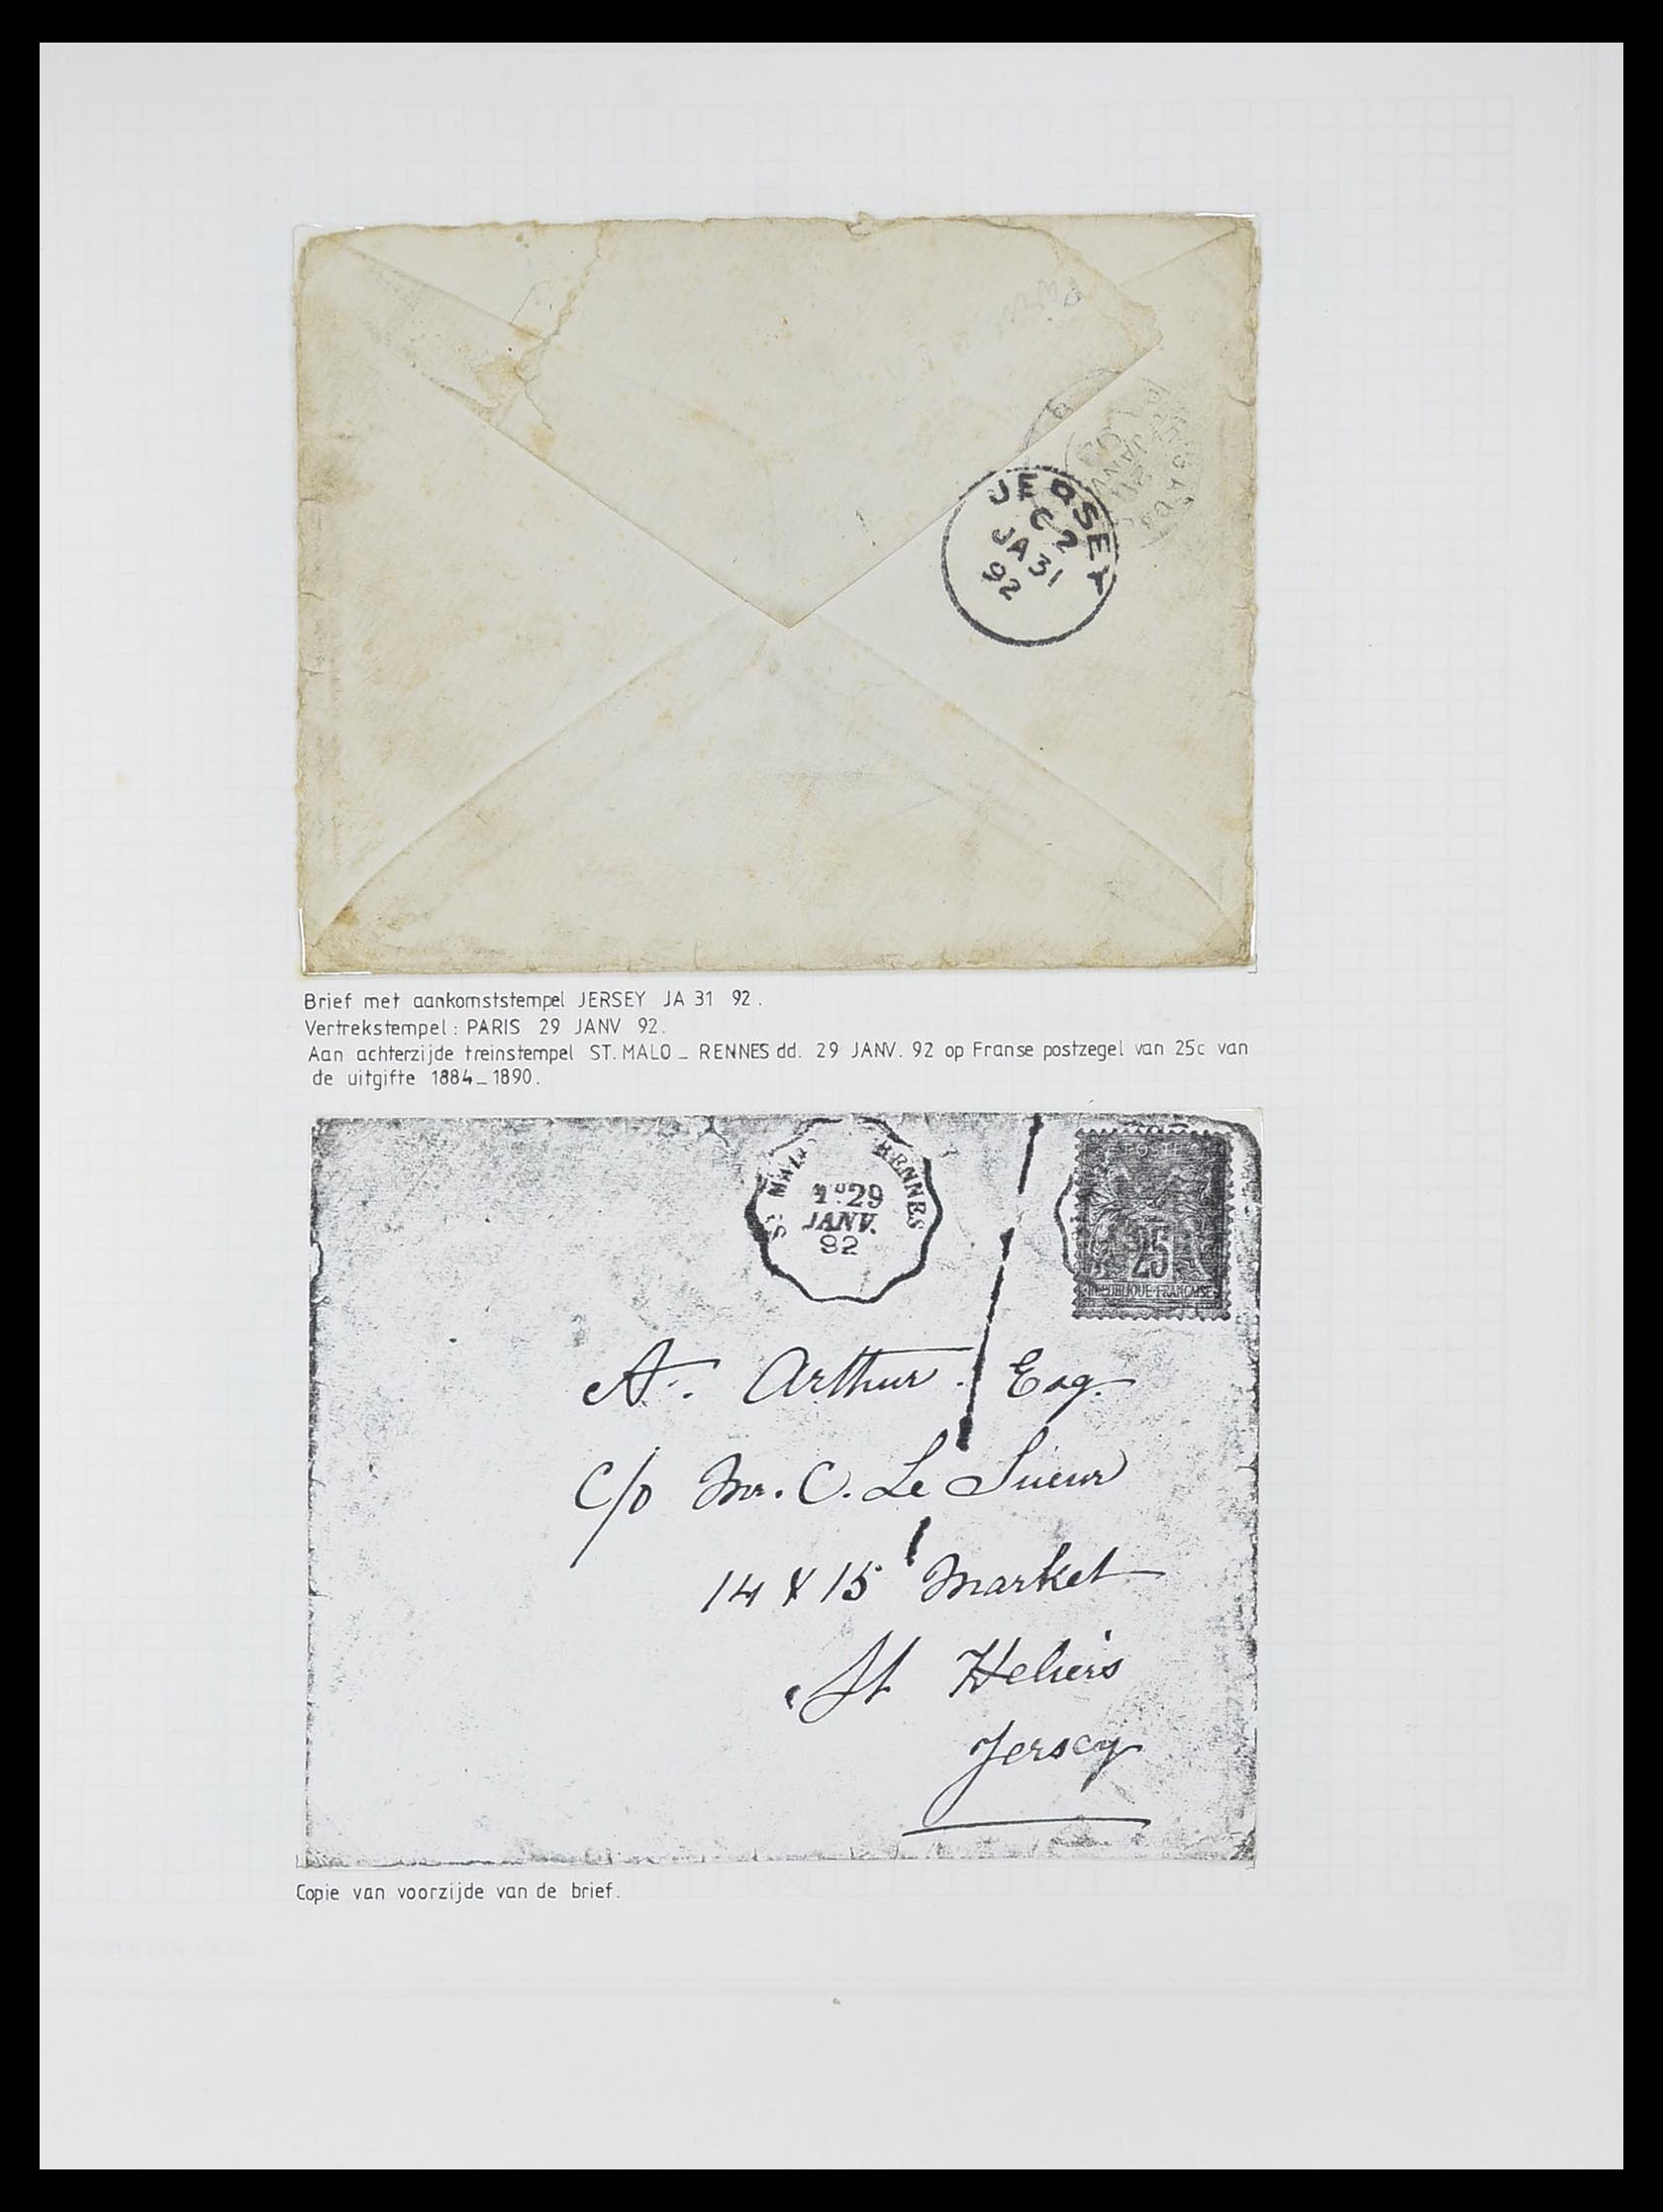 JERSEY
C 2
JA 31
92
JANV
Brief met aankomststempel JERSEY JA 31 92.
Vertrekstempel: PARIS 29 JANV 92.
Aan achterzijde treinstempel ST. MALO _ RENNES dd. 29 JANV. 92 op Franse postzegel van 25c van
de uitgifte 1884_1890.
RENNES
29
JANV.
92
POSTE
25
REPUBLIQUE FRANCAISE
A. Arthur. Esq.
C/o Mr. C. Le Sueur
14 & 15 Market
St Heliers
Jersey
Copie van voorzijde van de brief.